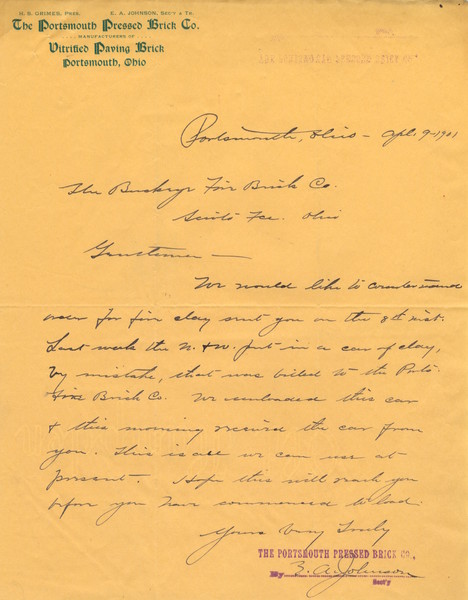 H. S. GRIMES, PRES. E. A. JOHNSON, SEC'Y & TR.
The Portsmouth Pressed Brick Co.
MANUFACTURERS OF
Vitrified Paving Brick
Portsmouth, Ohio
Portsmouth, Ohio - Apl. 9-1901
The Buckeye Fire Brick Co.
Scioto Fce. Ohio
Gentlemen -
We would like to countermand
order for fire clay sent you on the 8th inst.
Last week the N. & W. put in a car of clay,
by mistake, that was billed to the Ports
Fire Brick Co. We unloaded this car
& this morning received the car from
you. This is all we can use at
present. Hope this will reach you
before you have commenced to load.
Yours Very Truly
THE PORTSMOUTH PRESSED BRICK CO.,
By E. A. Johnson
Sect'y